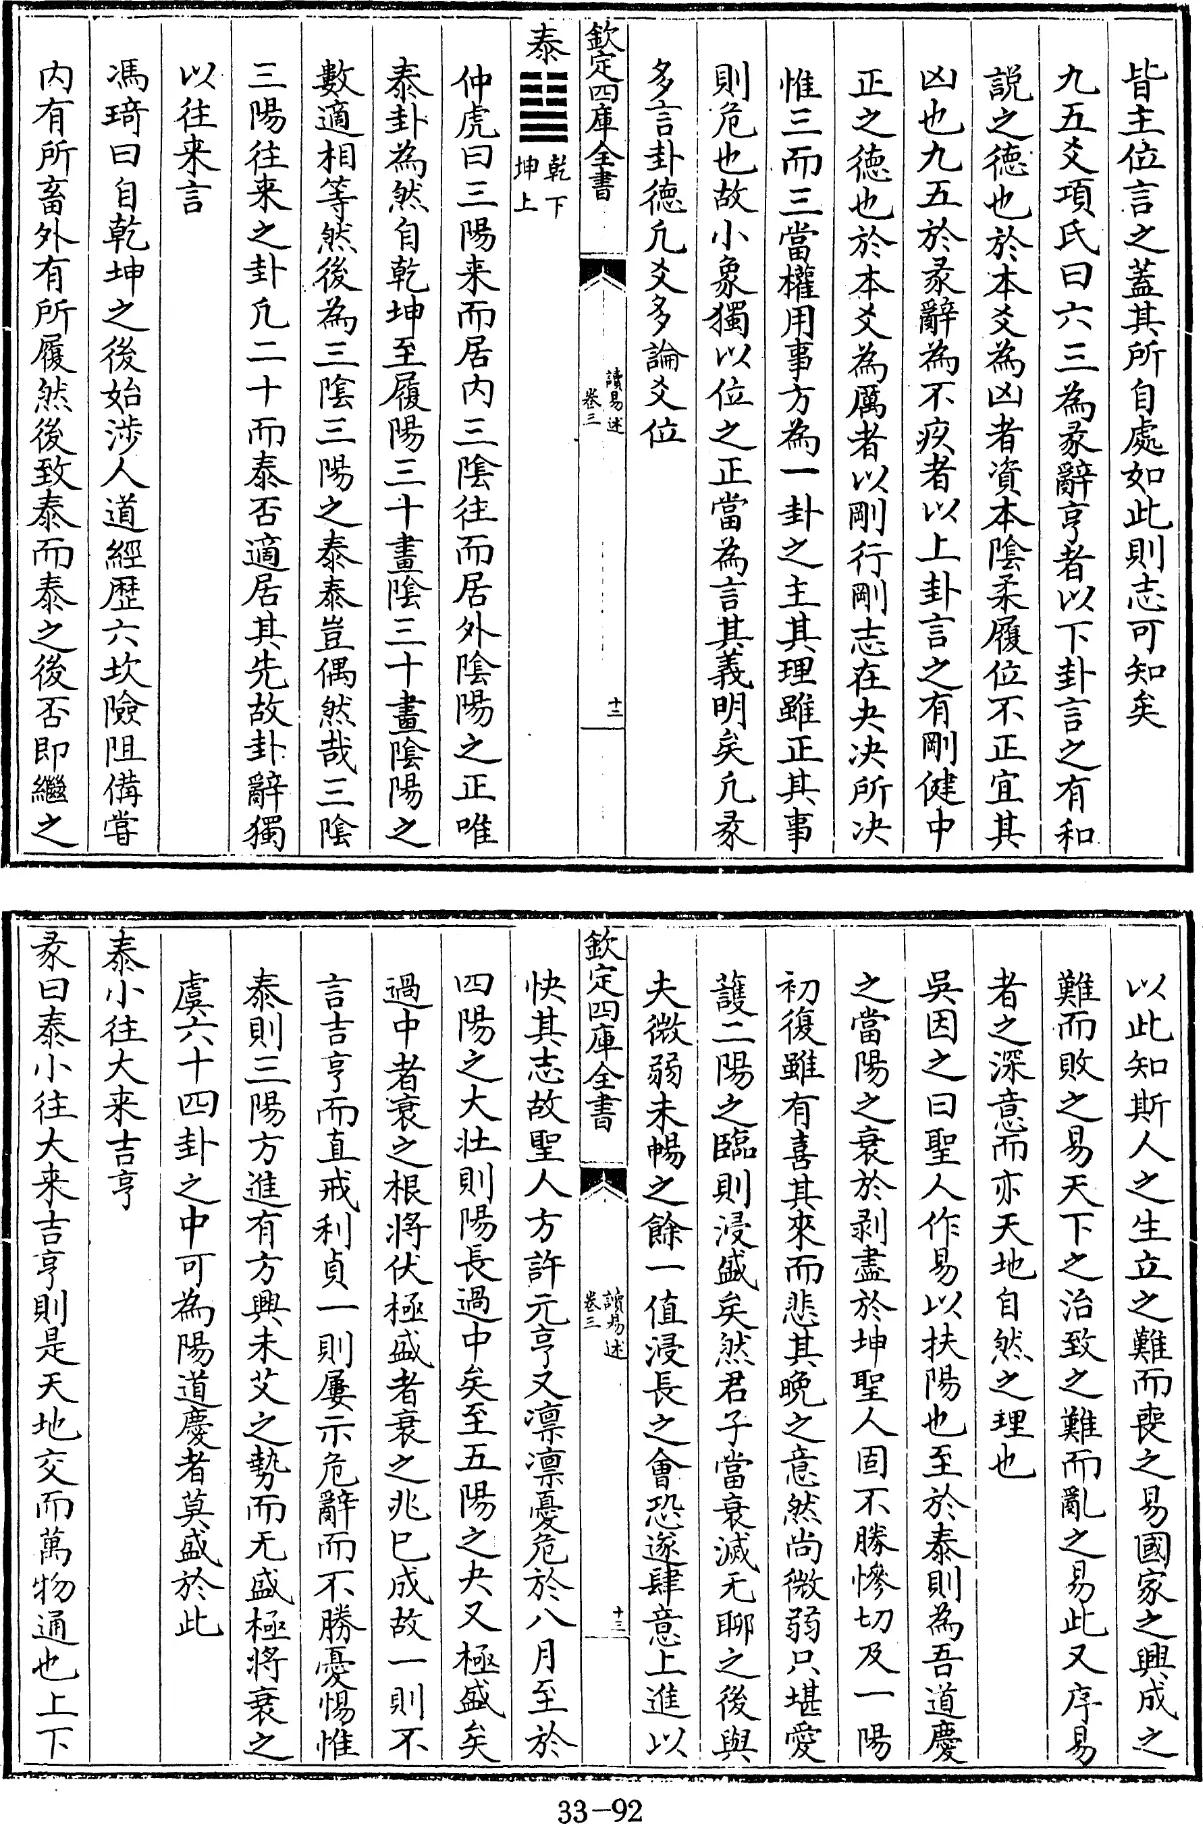 皆主位言之蓋其所自處如此則志可知矣
九五爻項氏曰六三為彖辭亨者以下卦言之有和
説之德也於本爻為凶者資本陰柔履位不正宜其
凶也九五於彖辭為不疚者以上卦言之有剛健中
正之德也於本爻為厲者以剛行剛志在夬决所决
惟三而三當權用事方為一卦之主其理雖正其事
則危也故小象獨以位之正當為言其義明矣凡彖
多言卦德凡爻多論爻位
欽定四庫全書
讀易述
卷三
十二
泰
乾下
坤上
仲虎曰三陽来而居内三陰往而居外陰陽之正唯
泰卦為然自乾坤至履陽三十畫陰三十畫陰陽之
數適相等然後為三陰三陽之泰泰豈偶然哉三陰
三陽往来之卦凡二十而泰否適居其先故卦辭獨
以往来言
馮琦曰自乾坤之後始涉人道經歴六坎險阻備嘗
内有所畜外有所履然後致泰而泰之後否即繼之
以此知斯人之生立之難而喪之易國家之興成之
難而敗之易天下之治致之難而亂之易此又序易
者之深意而亦天地自然之理也
吳因之曰聖人作易以扶陽也至於泰則為吾道慶
之當陽之衰於剥盡於坤聖人固不勝慘切及一陽
初復雖有喜其來而悲其晩之意然尚微弱只堪愛
護二陽之臨則浸盛矣然君子當衰滅无聊之後與
夫微弱未暢之餘一值浸長之會恐遂肆意上進以
欽定四庫全書
讀易述
卷三
十三
快其志故聖人方許元亨又凛凛憂危於八月至於
四陽之大壯則陽長過中矣至五陽之夬又極盛矣
過中者衰之根將伏極盛者衰之兆已成故一則不
言吉亨而直戒利貞一則屢示危辭而不勝憂惕惟
泰則三陽方進有方興未艾之勢而无盛極將衰之
虞六十四卦之中可為陽道慶者莫盛於此
泰小往大来吉亨
彖曰泰小往大来吉亨則是天地交而萬物通也上下
33-92